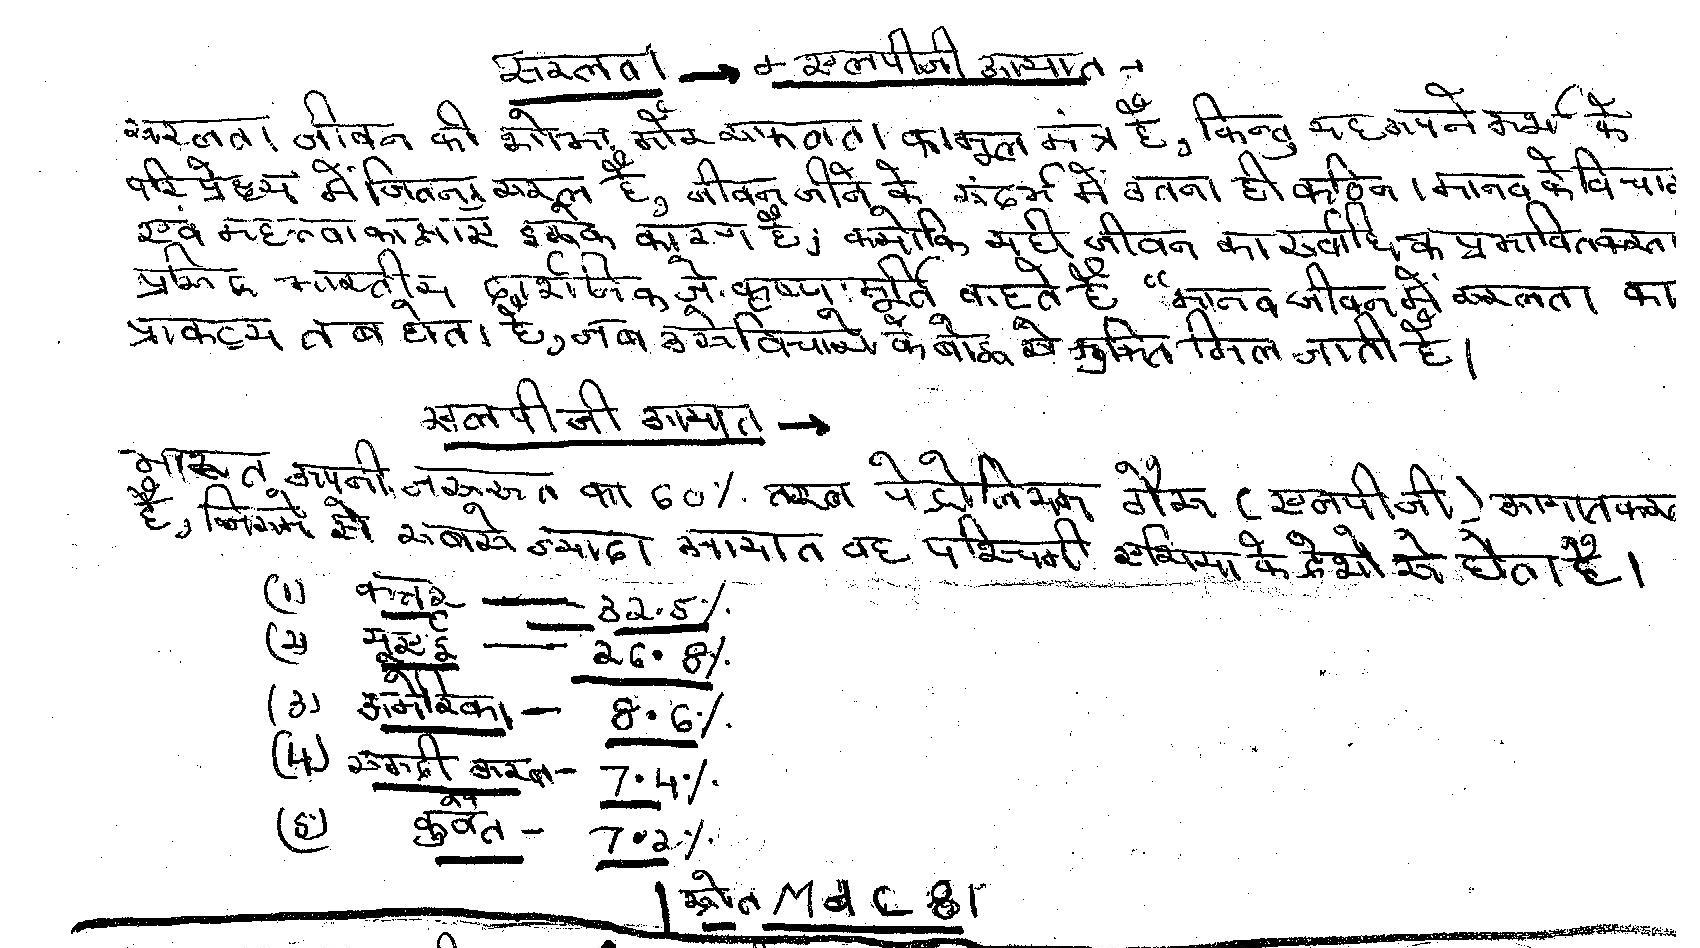 सरलता → + एलपीजी आयात →
सरलता जीवन की शोभा और सफलता का मूल मंत्र है, किन्तु यह अपने अर्थ के
परिप्रेक्ष्य में जितना सरल है, जीवन जीने के संदर्भ में उतना ही कठिन। मानव के विचार
एवं महत्त्वाकांक्षाएं इसके कारण है; क्योंकि यही जीवन का सर्वाधिक प्रभावित करता
प्रसिद्ध भारतीय दार्शनिक जे. कृष्णमूर्ति कहते हैं “मानव जीवन में सरलता का
प्राकट्य तब होता है, जब उसे विचारो के बोझ से मुक्ति मिल जाती है।
एलपीजी आयात →
भारत अपनी जरूरत का 60% तरल पेट्रोलियम गैस (एलपीजी) आयात करता
है, जिसमे से सबसे ज्यादा आयात वह पश्चिमी एशिया के देशो से होता है।
(1) कतर — 32.5%
(2) यूएई — 26.8%
(3) अमेरिका — 8.6%
(4) सऊदी अरब - 7.4%
(5) कुवैत - 7.2%
स्रोत